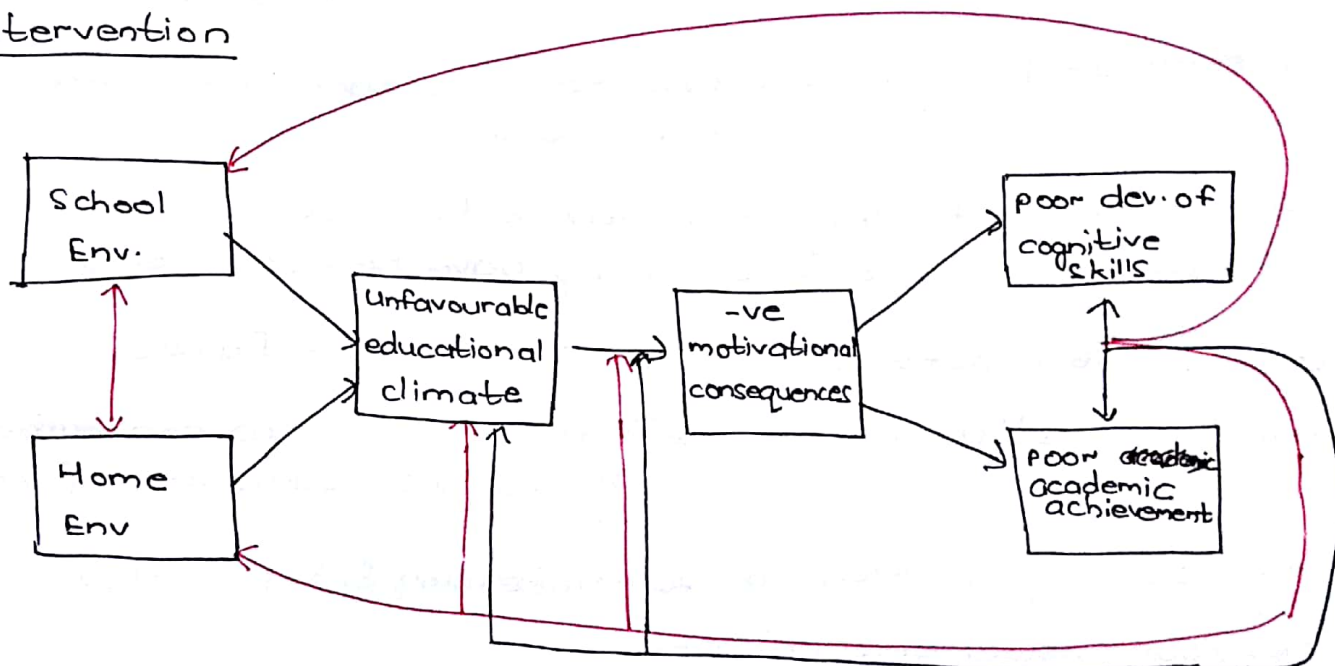 tervention
School
Env.
Home
Env
unfavourable
educational
climate
-ve
motivational
consequences
poor dev. of
cognitive
skills
poor
academic
achievement